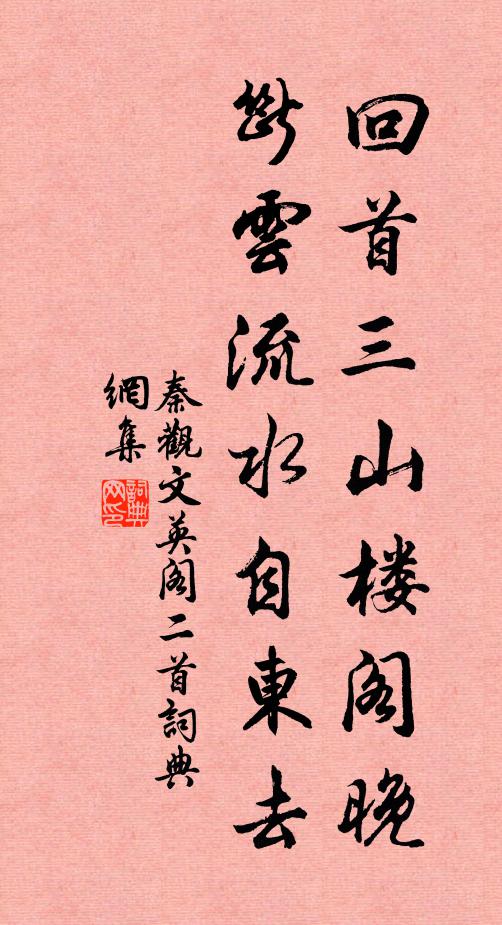 回首三山楼阁晚
断雲流水自東去
秦觀文英阁二首詞典
網集
詞典网印